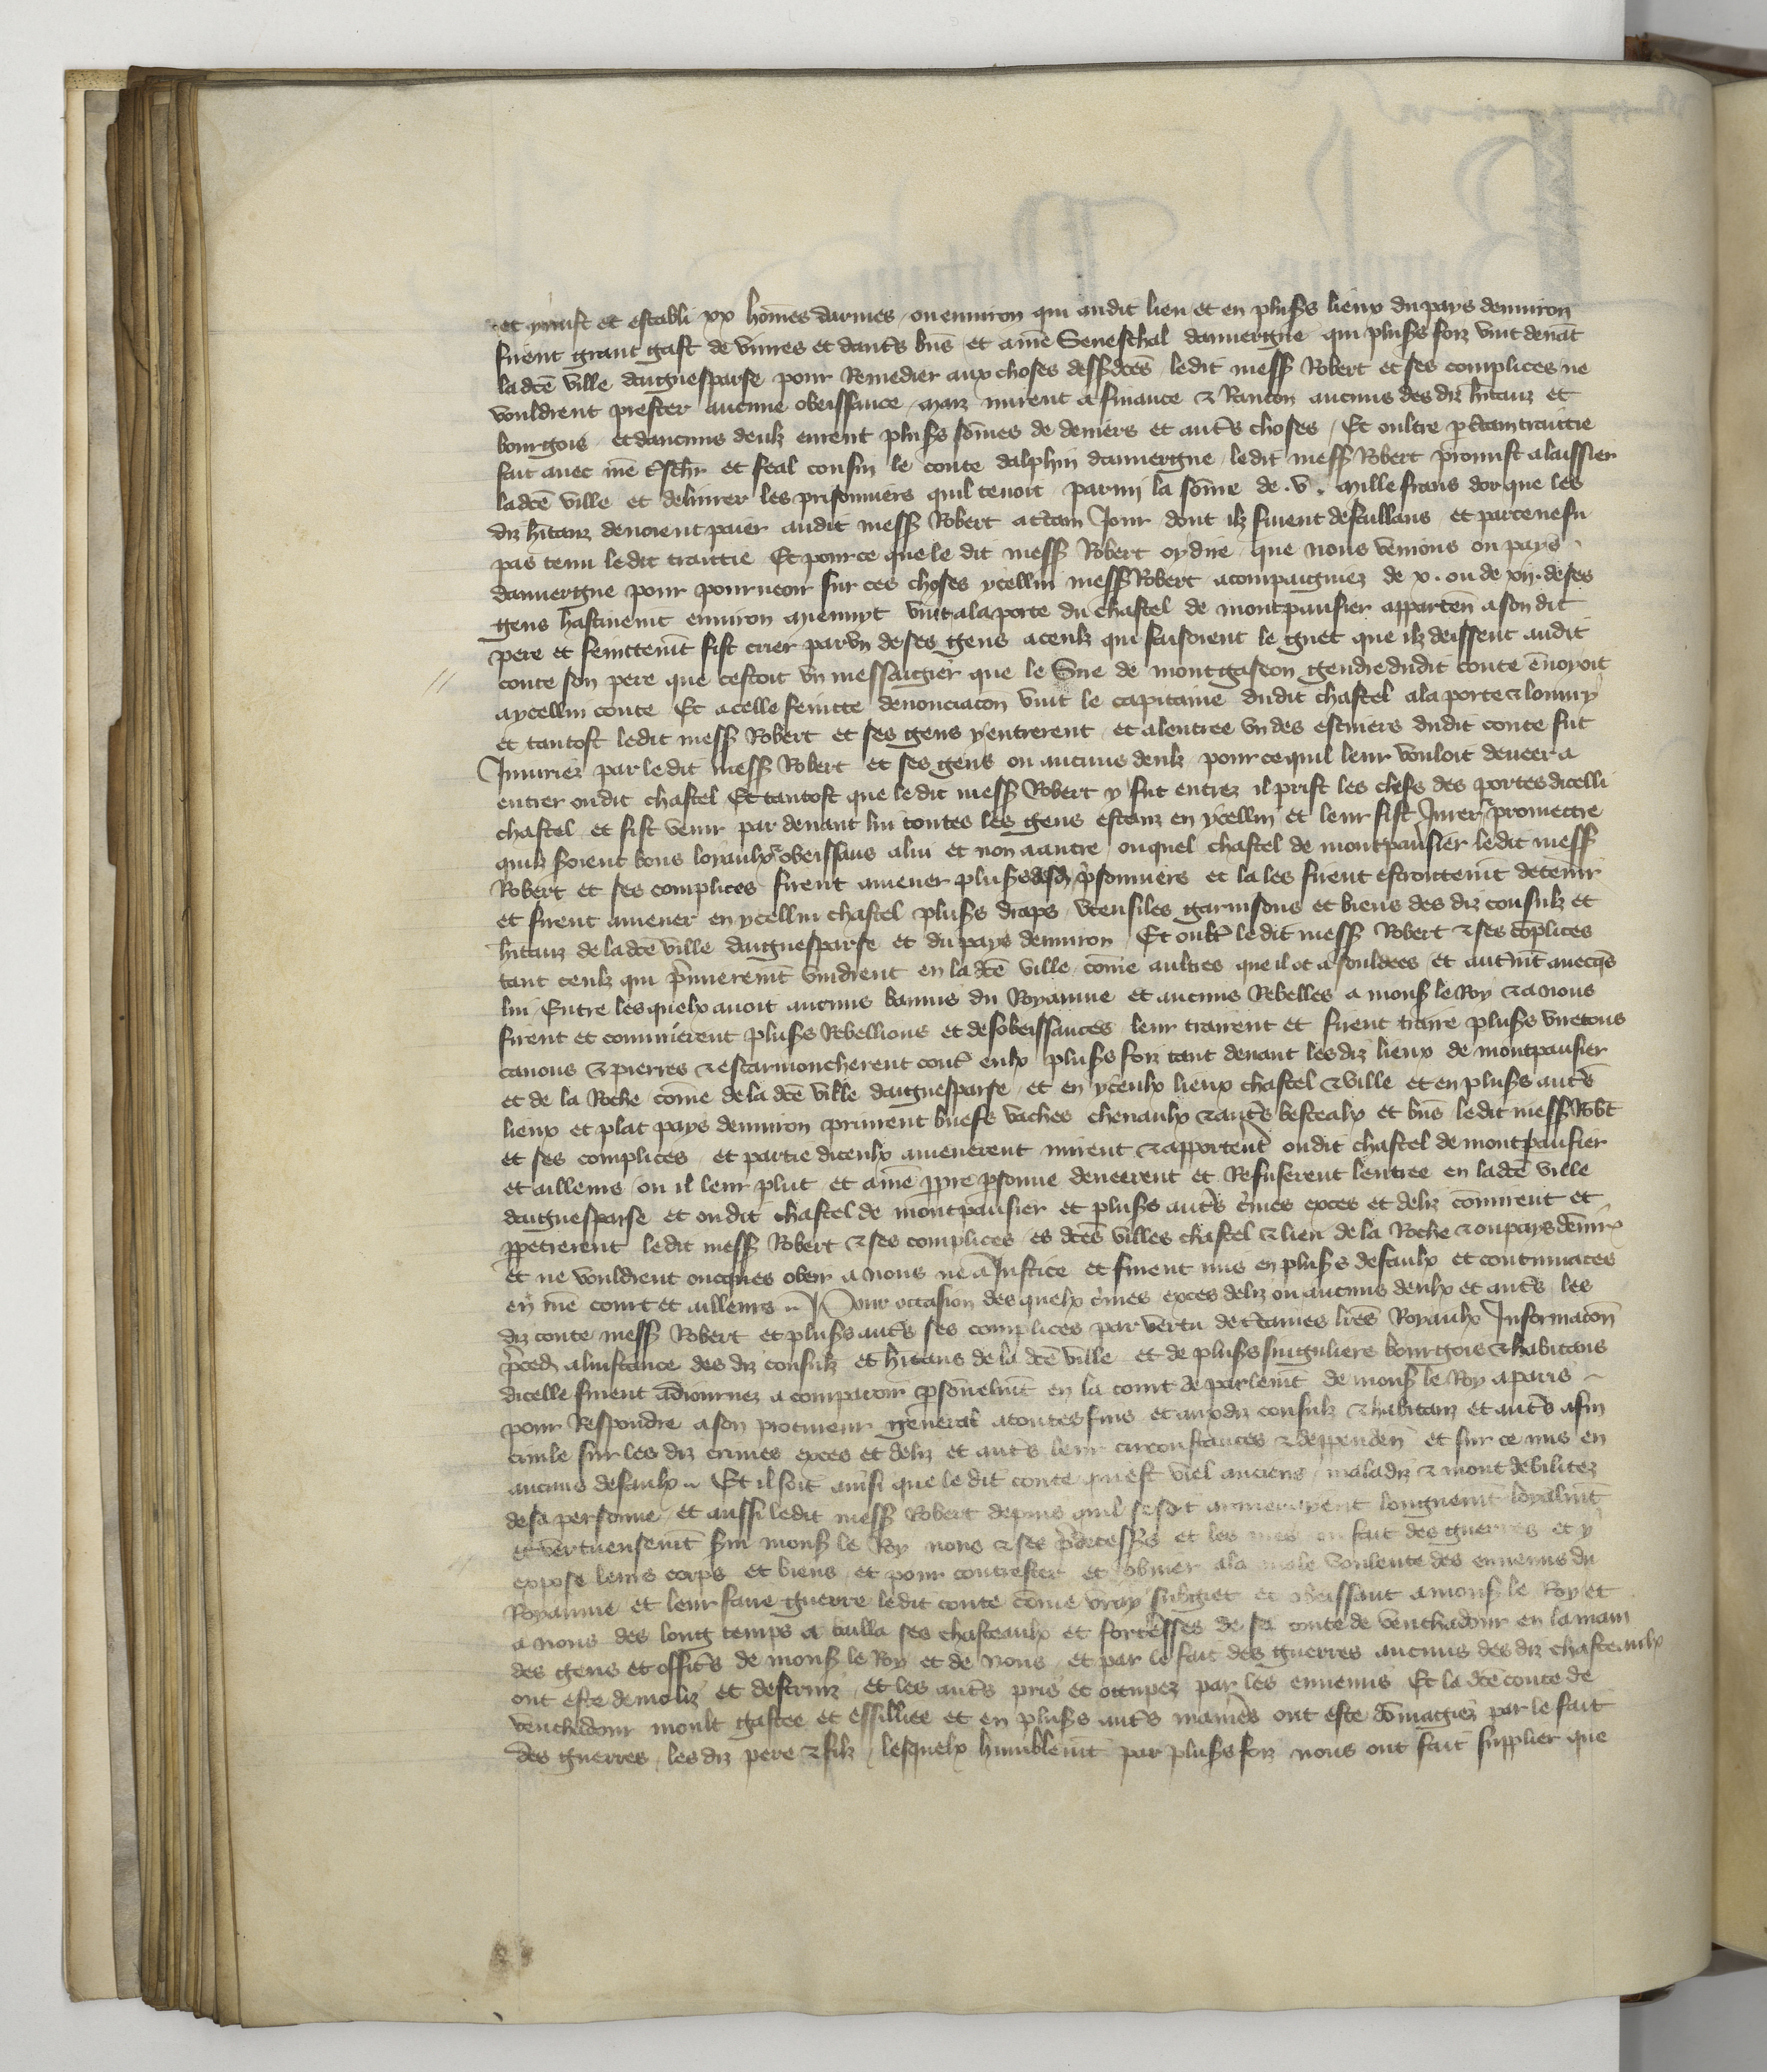 et y mist et establi xx hōmes darmes ou environ qui audit lieu et en plus̄s lieux du pays denviron
firent grant gast de vivres et daut̄s biēs et a mēs Seneschal dauvergne qui plus̄s foiz vint devāt
la dc̄e ville daiguesparse pour Remedier aux choses dess̄dc̄es ledit mess̄ Robert et ses complices ne
vouldrent prester aucune obeissance mais mirent a finance & Rancon aucuns des diz hītanz et
bourgois et daucuns deulz eurent plus̄s sōmes de deniers et aut̄s choses / Et oultre p c̄tain traittie
fait avec nr̄e t̄schr̄ et feal cousin le conte dalphin dauvergne ledit mess̄ Robert promist a laissier
la dc̄e ville et delivrer les prisonniers quil tenoit parmi la sōme de .v. mille frans dor que les
diz hītanz devoient paier audit mess̄ Robert a c̄tain Jour dont ilz furent defaillans et par ce ne fu
pas tenu ledit traittie Et pour ce que le dit mess̄ Robert oy dire que nous venions ou pays
dauvergne pour pourveoir sur ces choses ycellui mess̄ Robert acompaigniez de x. ou de xij. de ses
gens hastivemt̄ environ mienuyt vint a la porte du chastel de montpansier apparten̄ a son dit
pere et feinctemt̄ fist crier par vn de ses gens a ceulz qui faisoient le guet que ilz deissent audit
conte son pere que cestoit vn messaigier que le Sire de montgascon gendre dudit conte ēvoyoit
a ycellui conte Et a celle feincte denonciacōn vint le capitaine dudit chastel a la porte & louvry
et tantost ledit mess̄ Robert et ses gens y entrerent et a lentree vn des escuiers dudit conte fut
Iniuriez par le dit mess̄ Robert et ses gens ou aucuns deulz pour ce quil leur vouloit deveer a
entrer oudit chastel Et tantost que le dit mess̄ Robert y fut entrez il prist les clefs des portes dicelli
chastel et fist venir par devant lui toutes les gens estanz en ycellui et leur fist Jurer & promectre
quilz soient bons loyaulx & obeissans a lui et non a autre / ouquel chastel de montpansier ledit mess̄
Robert et ses complices firent amener plus̄s desd̄ pr̄isonniers et la les firent estroictemt̄ detenir
et firent amener en ycellui chastel plus̄s draps vtensiles garnisons et biens des diz consulz et
hītanz de la dc̄e ville daiguesparse et du pays denviron / Et oult̄ ledit mess̄ Robert & ses cōplices
tant ceulz qui p̄mieremt̄ vindrent en la dc̄e ville cōme aultres que il ot a souldees et aut̄mt̄ avecq̄s
lui Entre lesquelx avoit aucuns bannis du Royaume et aucuns Rebelles a mons̄ le Roy & a nous
firent et commirent plus̄s Rebellions et desobeissances leur trairent et firent traire plus̄s viretons
canons & pierres & escarmoucherent cont̄ eulx plus̄s foiz tant devant les diz lieux de montpansier
et de la Roche cōme de la dc̄e ville daiguesparse et en yceulx lieux chastel & ville et en plus̄s aut̄s
lieux et plat pays denviron prinrent buefs vaches chevaulx & aut̄s bestealx et biēs ledit mess̄ Rob̄t
et ses complices et partie diceulx amenerent mirent & apportent̄ oudit chastel de montpansier
et ailleurs ou il leur plut et a mēs pp̄re psonne deveerent et Refuserent lentree en la dc̄e ville
daiguesparse et oudit chastel de montpansier et plus̄s aut̄s c̄imes exces et deliz cōmirent et
ppetrerent ledit mess̄ Robert & ses complices es dc̄es villes chastel & lieu de la Roche & ou pays dēvir̄
et ne vouldrent oncques obeir a nous ne a Justice et furent mis en plus̄s defaulx et contumaces
en nr̄e court et ailleurs .. Pour occasion des quelx c̄imes exces deliz ou aucuns deulx et aut̄s les
diz conte mess̄ Robert et plus̄s aut̄s ses complices par vertu de c̄taines lr̄es Royaulx Informacōn
p̄ced̄ a linstance des diz consulz et hītans de la dc̄e ville et de plus̄s singuliers bourgois & habitans
dicelle furent adiournez a comparoir psonelmt̄ en la court de parlemt̄ de mons̄ le Roy a paris
pour Respondre a son procureur general a toutes fins et aux diz consulz & habitanz et aut̄s a fin
civile sur les diz crimes exces et deliz et aut̄s leur circonstances & deppenden̄ et sur ce mis en
aucuns defaulx .. Et il soit ainsi que le dit conte qui est viel anciens maladiz & mout debilitez
de sa personne et aussi ledit mess̄ Robert depuis quil se sot armer ayent longuemt̄ loyalmt̄
et vertueusemt̄ s̄vi mons̄ le Roy nous & ses p̄decess̄s et les fait des guerres et y
expose leurs corps et biens et pour contrester et obvier a la male voulente des ennemis du
Royaume et leur faire guerre ledit conte cōme vray subgiet et obeissant a mons̄ le Roy et
a nous des long temps a bailla ses chasteaulx et forteresses de sa conte de venthadour en la main
des gens et offic̄s de mons̄ le Roy et de nous et par le fait des guerres aucuns des diz chasteaulx
ont este demoliz et destruiz et les aut̄s pris et occupez par les ennemis Et la dc̄e conte de
venthadour moult gastee et essilliee et en plus̄s aut̄s manie͞s ont este dōmagiez par le fait
des guerres les diz pere & filz / lesquelx humblemt̄ par plus̄s foiz nous ont fait supplier que